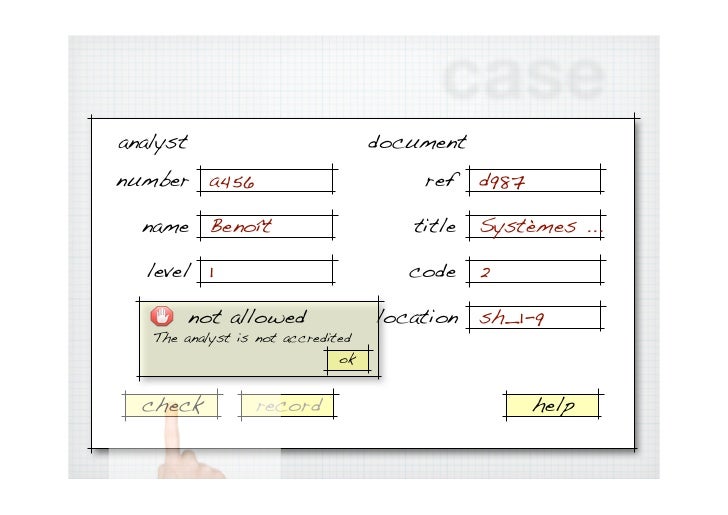 case
analyst document
number a456 ref d987
name Benoît title Systèmes ...
level 1 code 2
not allowed location sh_1-9
The analyst is not accredited
ok
check record help